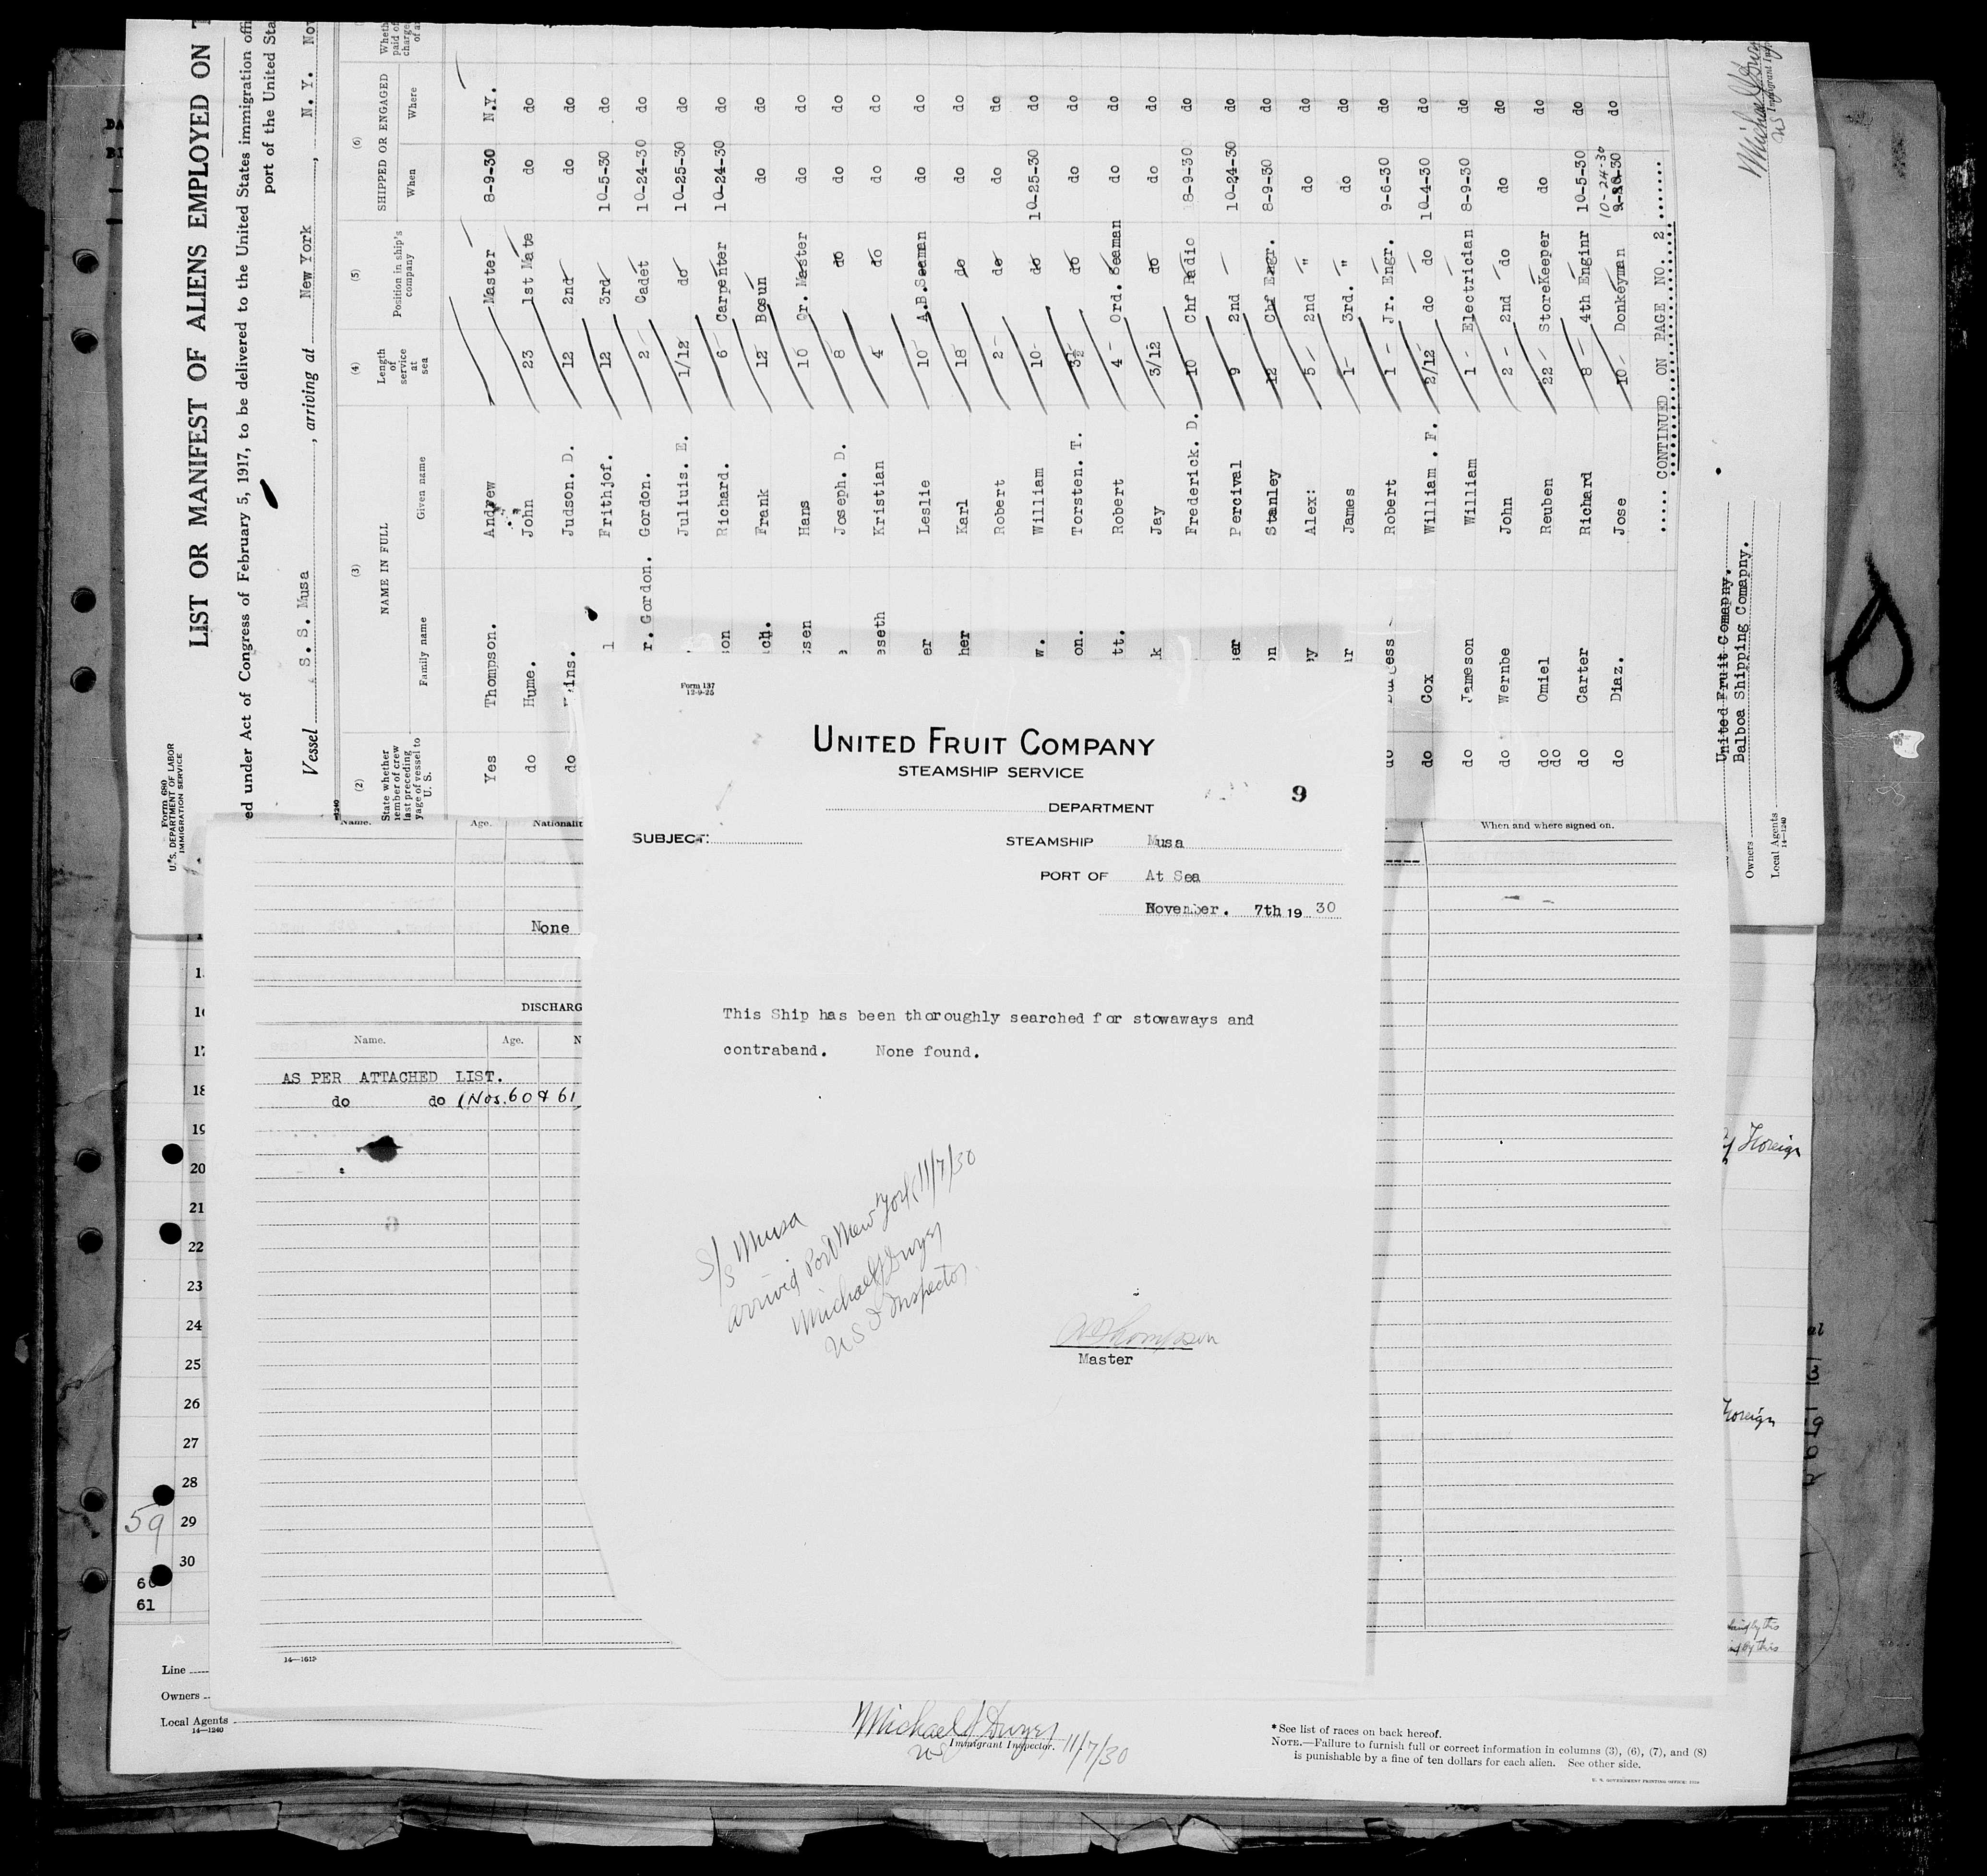 Form 137
12-9-25
UNITED FRUIT COMPANY
STEAMSHIP SERVICE
DEPARTMENT
9
SUBJECT:
STEAMSHIP Musa
PORT OF At Sea
November. 7th 19 30
This Ship has been thoroughly searched for stowaways and
contraband. None found.
S/S Musa
arrived Port New York 11/7/30
Michael J Dwyer
US I Inspector
Master
Form 680
U.S. DEPARTMENT OF LABOR
IMMIGRATION SERVICE
LIST OR MANIFEST OF ALIENS EMPLOYED ON
ed under Act of Congress of February 5, 1917, to be delivered to the United States immigration
port of the United
Vessel S. S. Musa, arriving at New York, N. Y.
(2) (3) (4) (5) (6)
State whether member of crew last preceding voyage of vessel to U. S.
NAME IN FULL
Family name Given name
Length of service at sea
Position in ship's company
SHIPPED OR ENGAGED
When Where
Yes Thompson. Andrew Master 8-9-30 N.Y.
do Hume. John 23 1st Mate do do
do ins. Judson. D. 12 2nd do do
Frithjof. 12 3rd 10-5-30 do
r. Gordon. Gordon. 2 Cadet 10-24-30 do
Juliuis. E. 1/12 do 10-25-30 do
son Richard. 6 Carpenter 10-24-30 do
ch. Frank 12 Bosun do do
sen Hans 10 Qr. Master do do
Joseph. D. 8 do do do
eseth Kristian 4 do do do
er Leslie 10 A.B.Seaman do do
her Karl 18 do do do
Robert 2 do do do
w. William 10 do 10-25-30 do
on. Torsten. T. 3½ do do do
tt. Robert 4 Ord. Seaman do do
k Jay 3/12 do do do
Frederick. D. 10 Chf Radio 8-9-30 do
ser Percival 9 2nd 10-24-30 do
on Stanley 12 Chf Engr. 8-9-30 do
ey Alex: 5 2nd " do do
ar James 1 3rd. " do do
do Burgess Robert 1 Jr. Engr. 9-6-30 do
do Cox William . F. 2/12 do do 10-4-30 do
do Jameson William 1 Electrician 8-9-30 do
do Wernbe John 2 2nd do do do
do Omiel Reuben 22 StoreKeeper do do
do
do Carter Richard 8 4th Enginr 10-5-30 do
do Diaz. Jose 10 Donkeyman 10-24-30 do
..... CONTINUED ON PAGE NO. 2 .......
United Fruit Comapny.
Owners Balboa Shipping Comapny.
Local Agents
14-1240
Michael J Dwyer
US Immigrant
Name. Age. When and where signed on.
None
DISCHARG
Name. Age.
AS PER ATTACHED LIST.
do do (Nos. 60 & 61
14-1613
17
18
19
20
21
22
23
24
25
26
27
28
29
30
59
60
61
Foreign
Foreign
Line
Owners
Local Agents
14-1240
Michael J Dwyer 11/7/30
US Immigrant Inspector.
* See list of races on back hereof.
NOTE.—Failure to furnish full or correct information in columns (3), (6), (7), and (8)
is punishable by a fine of ten dollars for each alien. See other side.